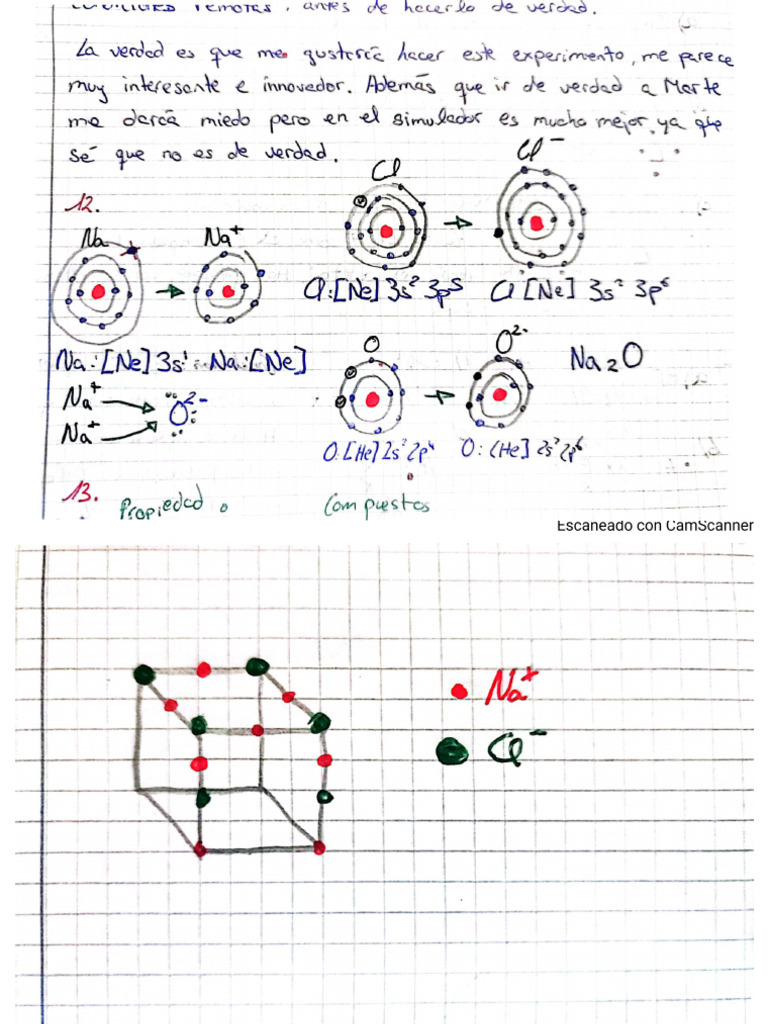 remotas, antes de hacerlo de verdad.
La verdad es que me gustaría hacer este experimento, me parece
muy interesante e innovador. Además que ir de verdad a Marte
me daría miedo pero en el simulador es mucho mejor, ya que
sé que no es de verdad.
12.
Cl
Cl⁻
Na
Na⁺
Cl:[Ne] 3s² 3p⁵
Cl [Ne] 3s² 3p⁶
Na:[Ne] 3s¹
Na:[Ne]
O
O²⁻
Na₂O
Na⁺
Na⁺
O²⁻
O:[He] 2s² 2p⁴
O:[He] 2s² 2p⁶
13.
Propiedad
Compuestos
Escaneado con CamScanner
Na⁺
Cl⁻